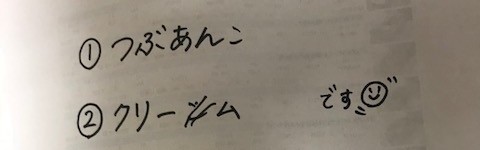 ①つぶあんこ
②クリーム です